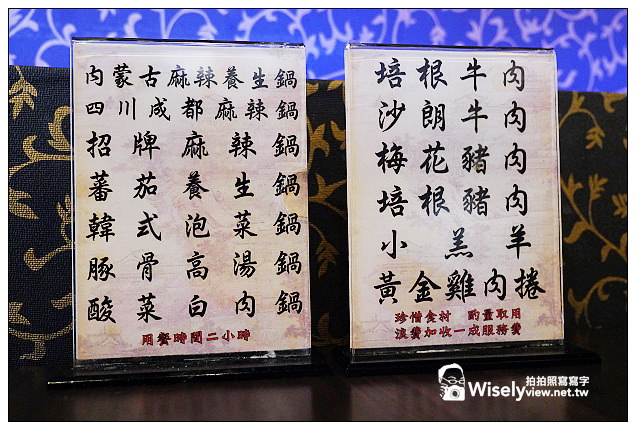 內蒙古麻辣養生鍋
四川成都麻辣鍋
招牌麻辣鍋
蕃茄養生鍋
韓式泡菜鍋
豚骨高湯鍋
酸菜白肉鍋
用餐時間二小時
培根牛肉
沙朗牛肉
梅花豬肉
培根豬肉
小羔羊
黃金雞肉捲
珍惜食材 酌量取用
滇費加收一成服務費
拍拍照寫寫字
Wiselyview.net.tw